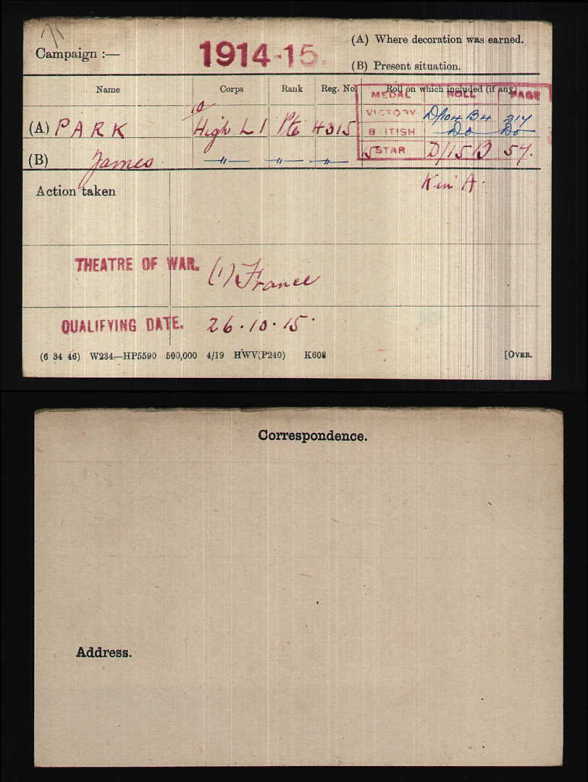 Campaign :— 1914-15. (A) Where decoration was earned.
(B) Present situation.
Name Corps Rank Reg. No. Roll on which included (if any)
MEDAL ROLL PAGE
(A) PARK 10 High L I Pte 4315 VICTORY D/104 B4 217
BRITISH Do Do
(B) James —"— —"— —"— 15 STAR D/15 B 57.
Action taken K in A.
THEATRE OF WAR. (1) France
QUALIFYING DATE. 26.10.15.
(6 34 46) W234—HP5590 500,000 4/19 HWV(P240) K608 [OVER.
Correspondence.
Address.